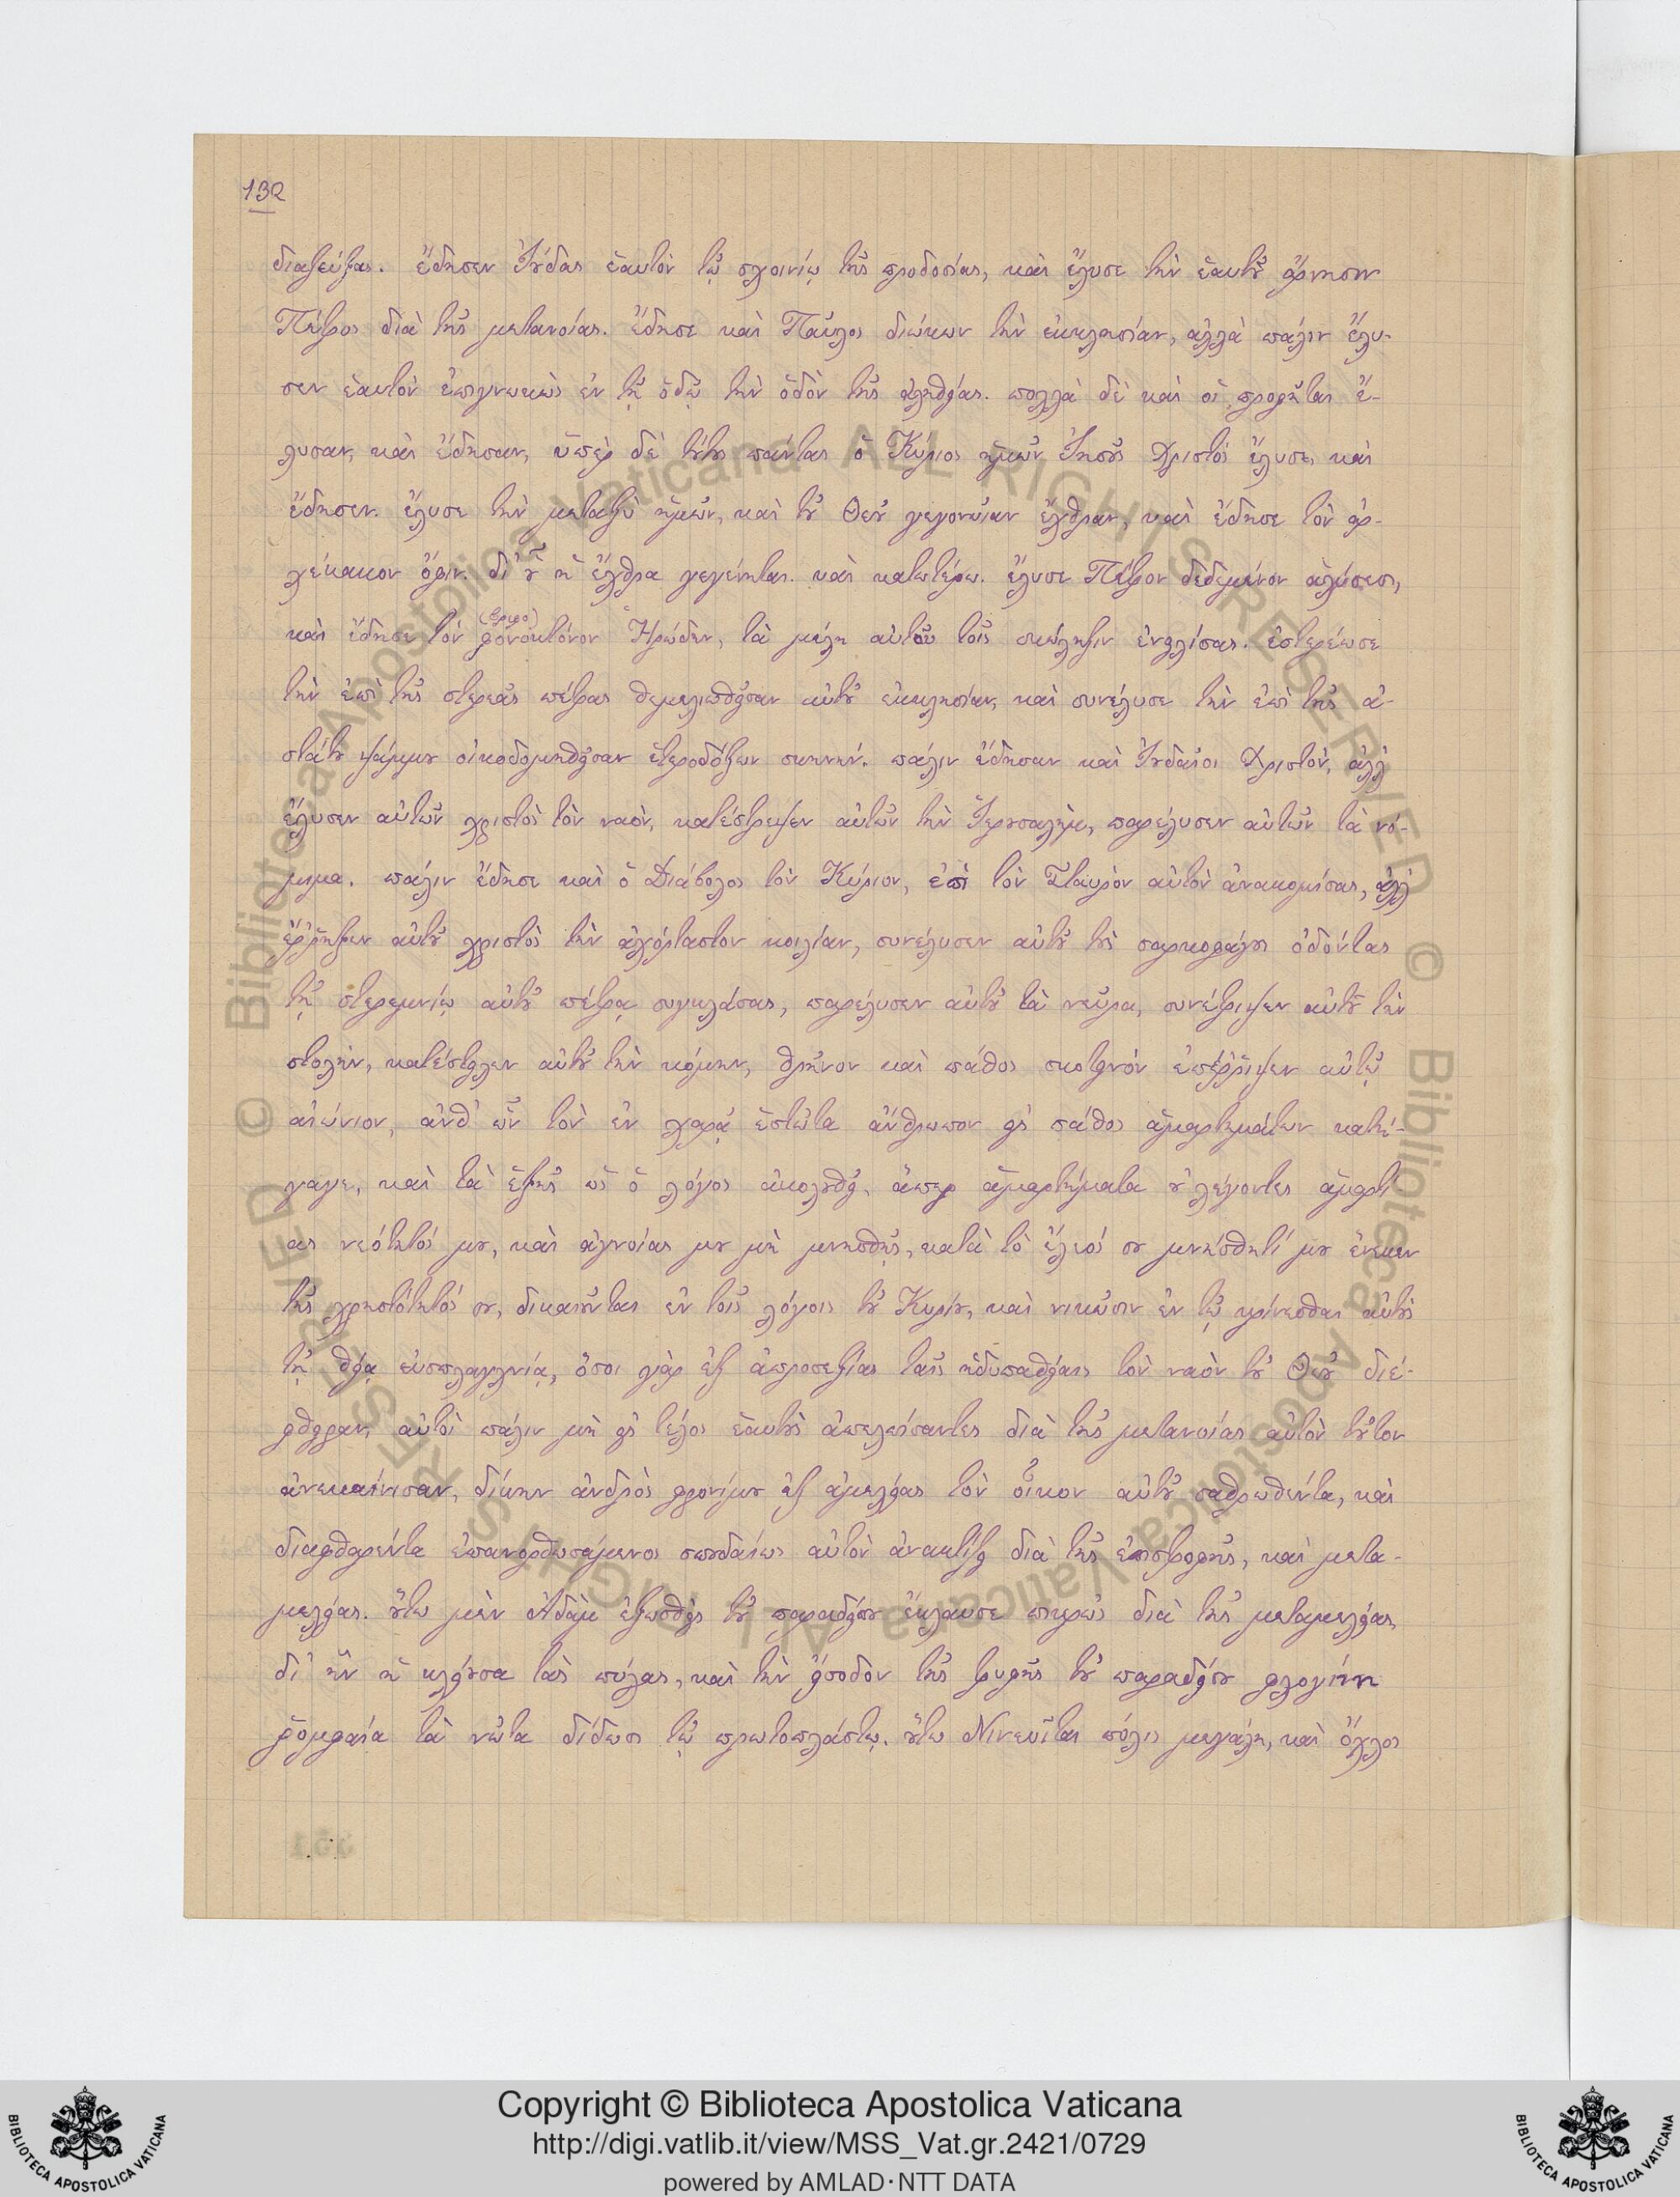 132
διαζεύξας. ἔδησεν Ἰούδας ἑαυτὸν τῷ σχοινίῳ τῆς προδοσίας, καὶ ἔλυσε τὴν ἑαυτοῦ ἄρνησιν
Πέτρος διὰ τῆς μετανοίας. ἔδησε καὶ Παῦλος διώκων τὴν ἐκκλησίαν, ἀλλὰ πάλιν ἔλυ-
σεν ἑαυτὸν ἐπεγνωκὼς ἐν τῇ ὁδῷ τὴν ὁδὸν τῆς ἀληθείας. πολλὰ δὲ καὶ οἱ προφῆται ἔ-
λυσαν, καὶ ἔδησαν, ὑπὲρ δὲ τούτους πάντας ὁ Κύριος ἡμῶν Ἰησοῦς Χριστὸς ἔλυσε, καὶ
ἔδησεν. ἔλυσε τὴν μεταξὺ ἡμῶν, καὶ τοῦ Θεοῦ γεγονυῖαν ἔχθραν, καὶ ἔδησε τὸν ἀρ-
χέκακον ὄφιν. δι' οὗ ἡ ἔχθρα γεγένηται. καὶ κατωτέρω. ἔλυσε Πέτρον δεδεμένον ἁλύσεσι,
καὶ ἔδησε τὸν φονοκτόνον Ἡρώδην, τὰ μέλη αὐτοῦ τοῖς σκώληξιν ἐγκλείσας. ἐστερέωσε
τὴν ἐπὶ τῆς στερεᾶς πέτρας θεμελιωθεῖσαν αὐτοῦ ἐκκλησίαν, καὶ συνέλυσε τὴν ἐπὶ τῆς ἀ-
στάτου ψάμμου οἰκοδομηθεῖσαν ἑτεροδόξων σκηνήν. πάλιν ἔδησαν καὶ Ἰουδαῖοι Χριστόν, ἀλλ'
ἔλυσεν αὐτῶν χριστὸς τὸν ναὸν, κατέστρεψεν αὐτῶν τὴν Ἱερουσαλὴμ, παρέλυσεν αὐτῶν τὰ νό-
μιμα. πάλιν ἔδησε καὶ ὁ Διάβολος τὸν Κύριον, ἐπὶ τὸν Σταυρὸν αὐτὸν ἀνακομίσας, ἀλλ'
ἔῤῥηξεν αὐτοῦ χριστὸς τὴν ἀχόρταστον κοιλίαν, συνέλυσεν αὐτοῦ τοὺς σαρκοφάγους ὀδόντας
τῇ στερεμνίῳ αὐτοῦ πέτρᾳ συγκλάσας, παρέλυσεν αὐτοῦ τὰ νεῦρα, συνέτριψεν αὐτοῦ τὴν
στολὴν, κατέστειλεν αὐτοῦ τὴν κόμην, θρῆνον καὶ πάθος σκοτεινὸν ἐπέῤῥιψεν αὐτῷ
αἰώνιον, ἀνθ' ὧν τὸν ἐν χαρᾷ ἑστῶτα ἄνθρωπον εἰς πάθος ἁμαρτημάτων κατή-
γαγε, καὶ τὰ ἑξῆς ὡς ὁ λόγος ἀκολουθεῖ, ἅπερ ἁμαρτήματα οἱ λέγοντες ἁμαρτί
ας νεότητός μου, καὶ ἀγνοίας μου μὴ μνησθῇς, κατὰ τὸ ἔλεός σου μνήσθητί μου ἕνεκεν
τῆς χρηστότητός σου, δικαιοῦνται ἐν τοῖς λόγοις τοῦ Κυρίου, καὶ νικῶσιν ἐν τῷ κρίνεσθαι αὐτοὺς
τῇ θείᾳ εὐσπλαγχνίᾳ, ὅσοι γὰρ ἐξ ἀπροσεξίας ταῖς ἡδυπαθείαις τὸν ναὸν τοῦ Θεοῦ διέ-
φθειραν, αὐτοὶ πάλιν μὴ εἰς τέλος ἑαυτοὺς ἀπελπίσαντες διὰ τῆς μετανοίας αὐτὸν τοῦτον
ἀνεκαίνισαν, δίκην ἀνδρὸς φρονίμου ἐξ ἀμελείας τὸν οἶκον αὐτοῦ σαθρωθέντα, καὶ
διαφθαρέντα ἐπανορθωσάμενος σπουδαίως αὐτὸν ἀνακτίζει διὰ τῆς ἐπιστροφῆς, καὶ μετα-
μελείας. οὕτω μὲν Ἀδὰμ ἐξωσθεὶς τοῦ παραδείσου ἔκλαυσε πικρῶς διὰ τῆς μεταμελείας,
δι' ἣν ἡ κλείουσα τὰς πύλας, καὶ τὴν εἴσοδον τῆς τρυφῆς τοῦ παραδείσου φλογίνη
ῥομφαία τὰ νῶτα δίδωσι τῷ πρωτοπλάστῳ. οὕτω Νινευῖται πόλις μεγάλη, καὶ ὄχλος
Copyright © Biblioteca Apostolica Vaticana
http://digi.vatlib.it/view/MSS_Vat.gr.2421/0729
powered by AMLAD·NTT DATA